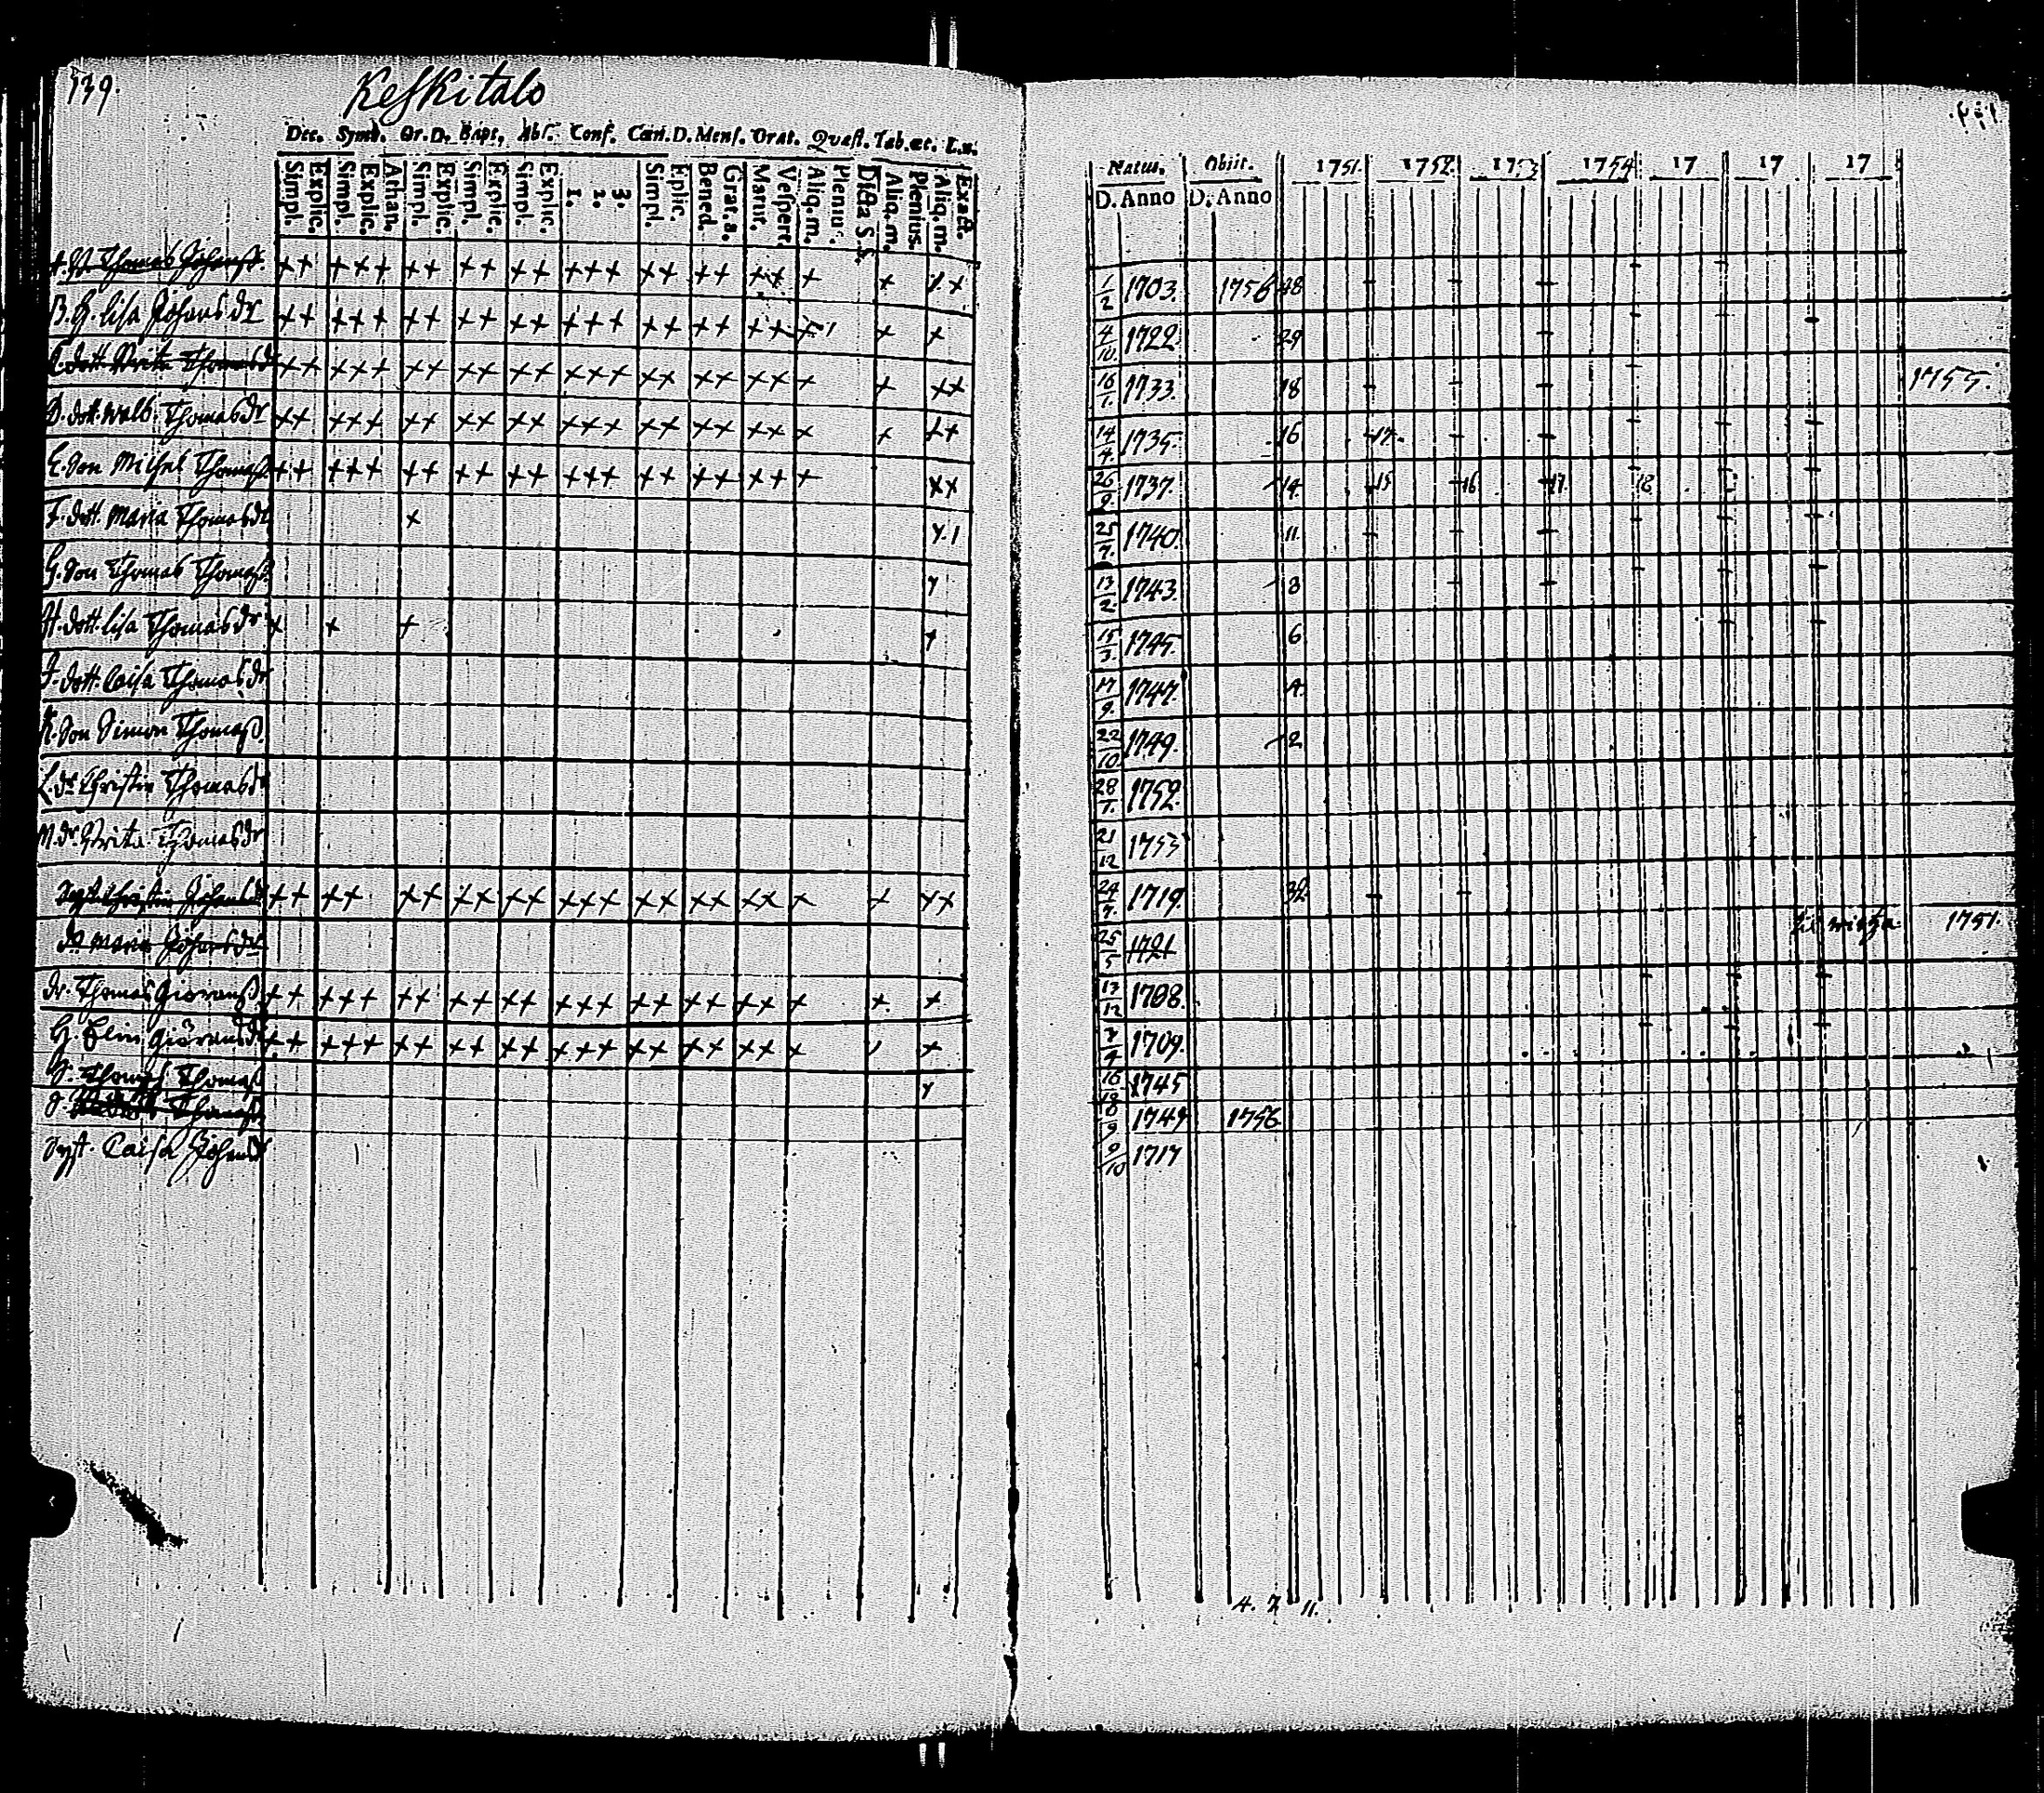 139.
Keskitalo
Dec. Symb. Or. D. Bapt. Abs. Conf. Cœn. D. Mens. Orat. Quæst. Tab. œc. L. n.
Simpl. Explic. Simpl. Explic. Athan. Simpl. Explic. Simpl. Explic. Simpl. Explic. 1. 2. 3. Simpl. Eplic. Bened. Grat. a. Matut. Vespert. Aliq. m. Pleniur. Dicta S. Aliq. m. Plenius. Aliq. m. Exact.
Natus. Obiit. 1751. 1752. 1753 1754 17 17 17
D. Anno D. Anno
Thomas Johanss. ++ +++ ++ ++ ++ +++ ++ ++ ++ + + ++ 1/2 1703. 1756 48
B. H. Lisa Johansdr ++ +++ ++ ++ ++ +++ ++ ++ ++ + + + 4/10 1722 29
C. dott. Brita Thomasd ++ +++ ++ ++ ++ +++ ++ ++ ++ + + ++ 16/1. 1733. 18 1755.
D. dott. Walb. Thomasdr ++ +++ ++ ++ ++ +++ ++ ++ ++ + + ++ 14/4 1735. 16 17.
E. Son Michel Thomass ++ +++ ++ ++ ++ +++ ++ ++ ++ + ++ 26/9 1737. 14 15 16 17 18
F. dott. Maria Thomasdr + 25/7. 1740. 11.
G. Son Thomas Thomass 13/2 1743. 8
H. dott. Lisa Thomasdr + + + + 15/3. 1745. 6
I. dott. Caisa Thomasdr 17/9. 1747. 4
K. Son Simon Thomass. 22/10 1749. 2
L. dr Christin Thomasdr 28/1. 1752.
M. dr. Brita Thomasdr 21/12 1753
Syst. Christin Johansdr ++ ++ ++ ++ ++ +++ ++ ++ ++ + + ++ 24/7. 1719. 32
do Maria Johansdr 25/5 1721 1751.
dr. Thomas Giöranss ++ +++ ++ ++ ++ +++ ++ ++ ++ + + + 13/12 1708.
H. Elin Giöransdr ++ +++ ++ ++ ++ +++ ++ ++ ++ + + 1709.
S. Thomas Thomass 1745
S. Thomass 1749 1756
Syst. Caisa Johansdr 9/10 1717
4. 7 11.